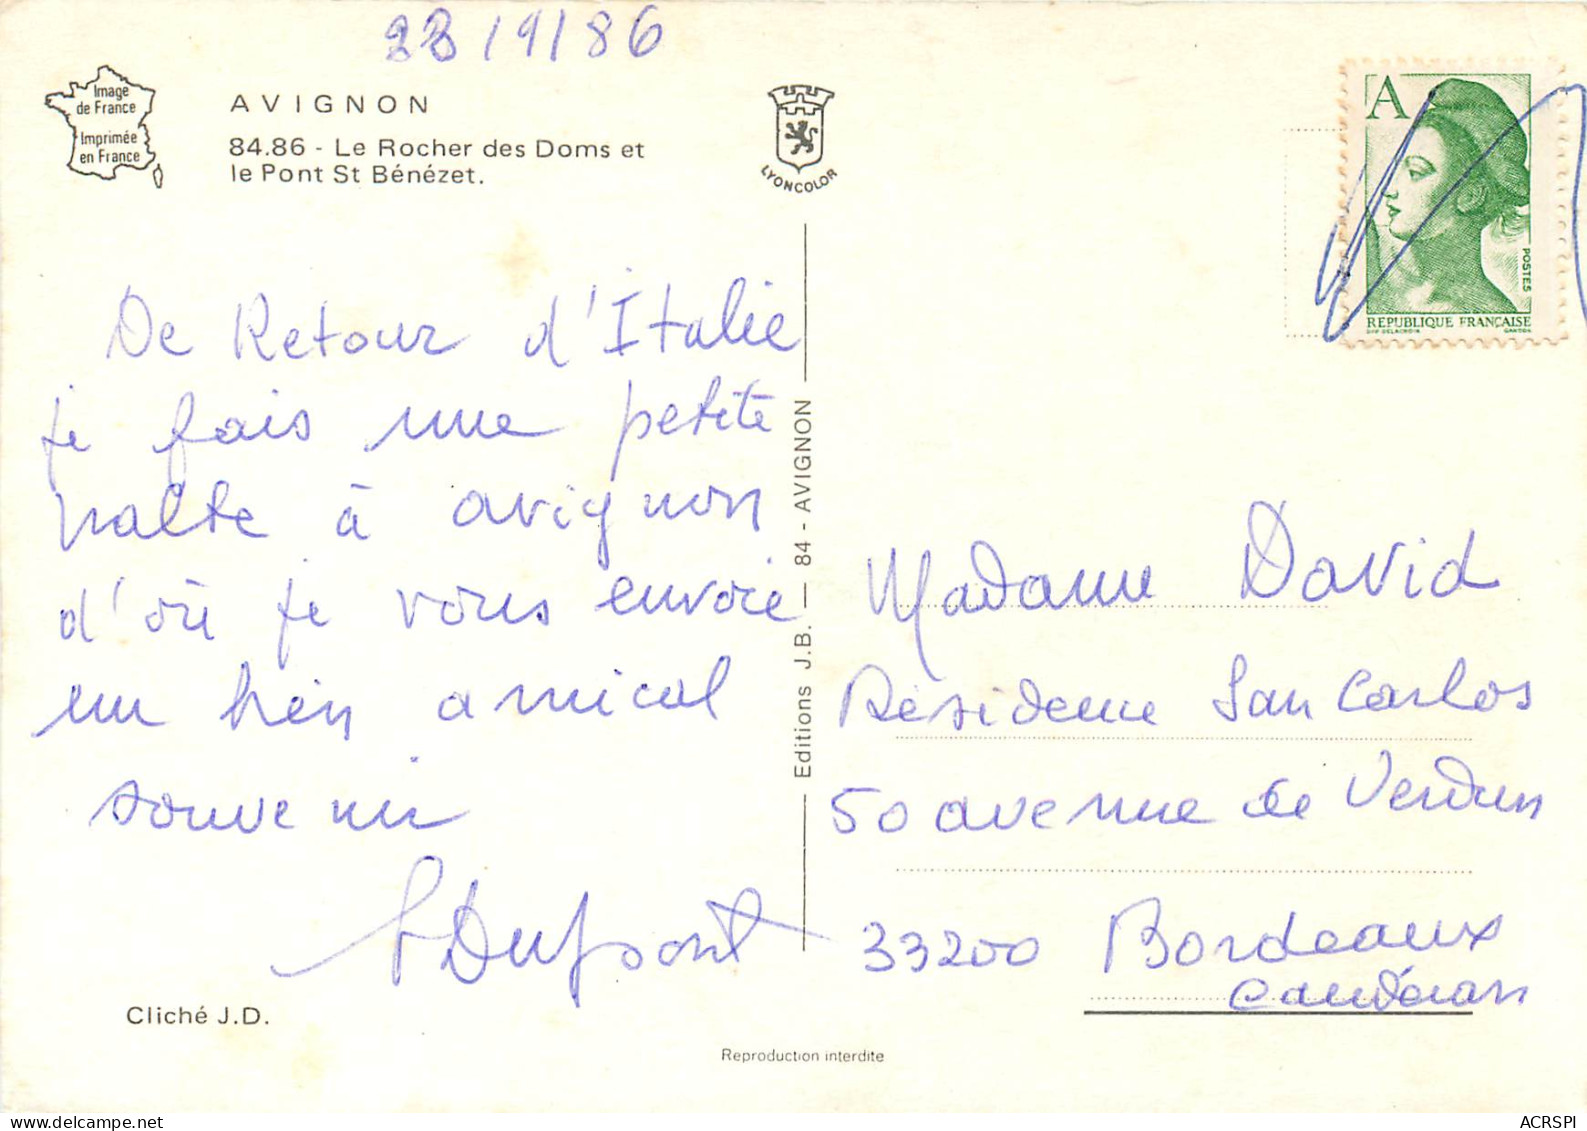 28/9/86
Image
de France
Imprimée
en France
AVIGNON
84.86 - Le Rocher des Doms et
le Pont St Bénézet.
LYONCOLOR
A
POSTES
REPUBLIQUE FRANÇAISE
De Retour d'Italie
je fais une petite
halte à avignon
d'où je vous envoie
un bien amical
souvenir
Dupont
Cliché J.D.
Editions J.B. - 84 - AVIGNON
Madame David
Résidence San Carlos
50 avenue de Verdun
33200 Bordeaux
Caudéran
Reproduction interdite
ACRSPI